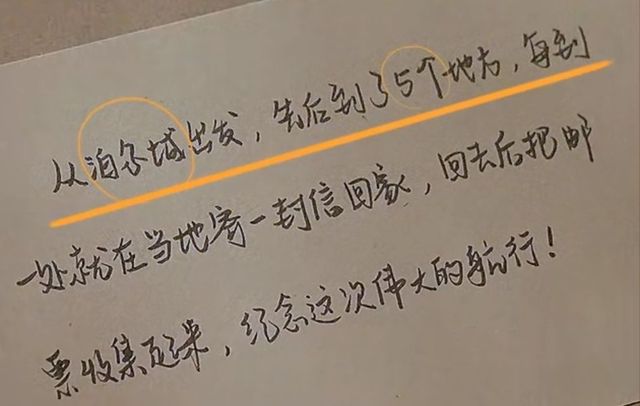 从泊尔城出发，先后到了5个地方，每到
一处就在当地寄一封信回家，回去后把邮
票收集起来，纪念这次伟大的航行！